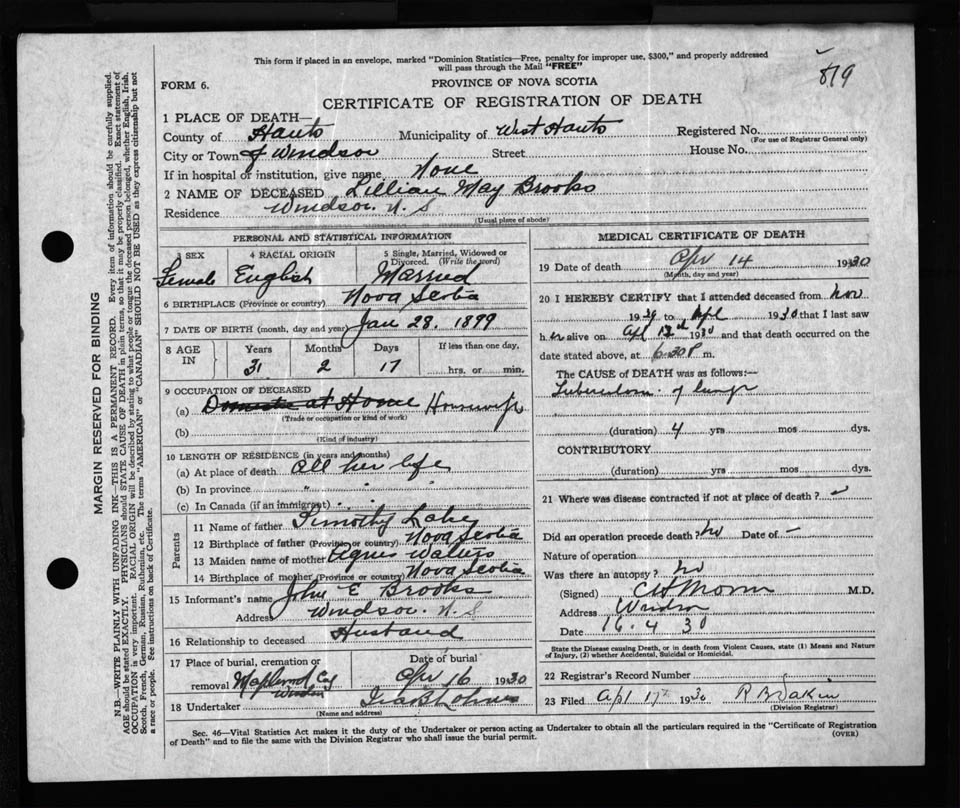 This form if placed in an envelope, marked "Dominion Statistics—Free, penalty for improper use, $300," and properly addressed
will pass through the Mail "FREE"
819
FORM 6.
PROVINCE OF NOVA SCOTIA
CERTIFICATE OF REGISTRATION OF DEATH
1 PLACE OF DEATH—
County of Hants Municipality of West Hants Registered No.
(For use of Registrar General only)
City or Town of Windsor Street House No.
If in hospital or institution, give name None
2 NAME OF DECEASED Lillian May Brooks
Residence Windsor. N. S
(Usual place of abode)
PERSONAL AND STATISTICAL INFORMATION
3 SEX 4 RACIAL ORIGIN 5 Single, Married, Widowed or Divorced. (Write the word)
Female English Married
6 BIRTHPLACE (Province or country) Nova Scotia
7 DATE OF BIRTH (month, day and year) Jan 28. 1899
8 AGE IN Years Months Days If less than one day,
31 2 17 hrs. or min.
9 OCCUPATION OF DECEASED
(a) Domestic at Home Housewife
(Trade or occupation or kind of work)
(b)
(Kind of industry)
10 LENGTH OF RESIDENCE (in years and months)
(a) At place of death All her life
(b) In province "
(c) In Canada (if an immigrant)
Parents
11 Name of father Timothy Lake
12 Birthplace of father (Province or country) Nova Scotia
13 Maiden name of mother Agnes Walters
14 Birthplace of mother (Province or country) Nova Scotia
15 Informant's name John E Brooks
Address Windsor. N. S
16 Relationship to deceased Husband
17 Place of burial, cremation or removal Maplewood Cem Windsor Date of burial Apr 16 1930
18 Undertaker
(Name and address)
MEDICAL CERTIFICATE OF DEATH
19 Date of death Apr 14 1930
(Month, day and year)
20 I HEREBY CERTIFY that I attended deceased from Nov
1929 to Apl 1930 that I last saw
h er alive on Apl 13th 1930 and that death occurred on the
date stated above, at 6.30 P m.
The CAUSE of DEATH was as follows:—
Tuberculosis of lungs
(duration) 4 yrs mos dys.
CONTRIBUTORY
(duration) yrs. mos. dys.
21 Where was disease contracted if not at place of death?
Did an operation precede death? No Date of –
Nature of operation
Was there an autopsy? No
(Signed) M.D.
Address Windsor
Date 16. 4 30
State the Disease causing Death, or in death from Violent Causes, state (1) Means and Nature
of Injury, (2) whether Accidental, Suicidal or Homicidal.
22 Registrar's Record Number
23 Filed Apl 17th 1930 R B Dakin
(Division Registrar)
Sec. 46—Vital Statistics Act makes it the duty of the Undertaker or person acting as Undertaker to obtain all the particulars required in the "Certificate of Registration
of Death" and to file the same with the Division Registrar who shall issue the burial permit. (OVER)
MARGIN RESERVED FOR BINDING
N.B.—WRITE PLAINLY WITH UNFADING INK—THIS IS A PERMANENT RECORD. Every item of information should be carefully supplied.
AGE should be stated EXACTLY. PHYSICIANS should STATE CAUSE OF DEATH in plain terms, so that it may be properly classified. Exact statement of
OCCUPATION is very important. RACIAL ORIGIN will be described by stating to what people or tongue the deceased person belonged, whether English, Irish,
Scotch, French, German, Russian, Ruthenian, etc. The terms "AMERICAN" or "CANADIAN" SHOULD NOT BE USED as they express citizenship but not
a race or people. See instructions on back of Certificate.